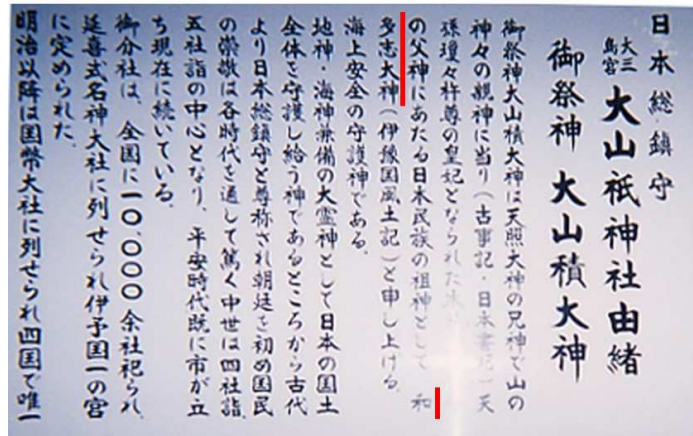 日本総鎮守
大三島宮 大山祇神社由緒
御祭神 大山積大神
御祭神大山積大神は天照大神の兄神で山の
神々の親神に当り(古事記・日本書記)天
孫瓊々杵尊の皇妃となられた木
の父神にあたる日本民族の祖神として 和
多志大神(伊豫国風土記)と申し上げる。
海上安全の守護神である。
地神・海神兼備の大霊神として日本の国土
全体を守護し給う神であるところから古代
より日本総鎮守と尊称され朝廷を初め国民
の崇敬は各時代を通して篤く中世は四社詣、
五社詣の中心となり、平安時代既に市が立
ち現在に続いている。
御分社は、全国に一〇、〇〇〇余社祀られ、
延喜式名神大社に列せられ伊予国一の宮
に定められた。
明治以降は国幣大社に列せられ四国で唯一